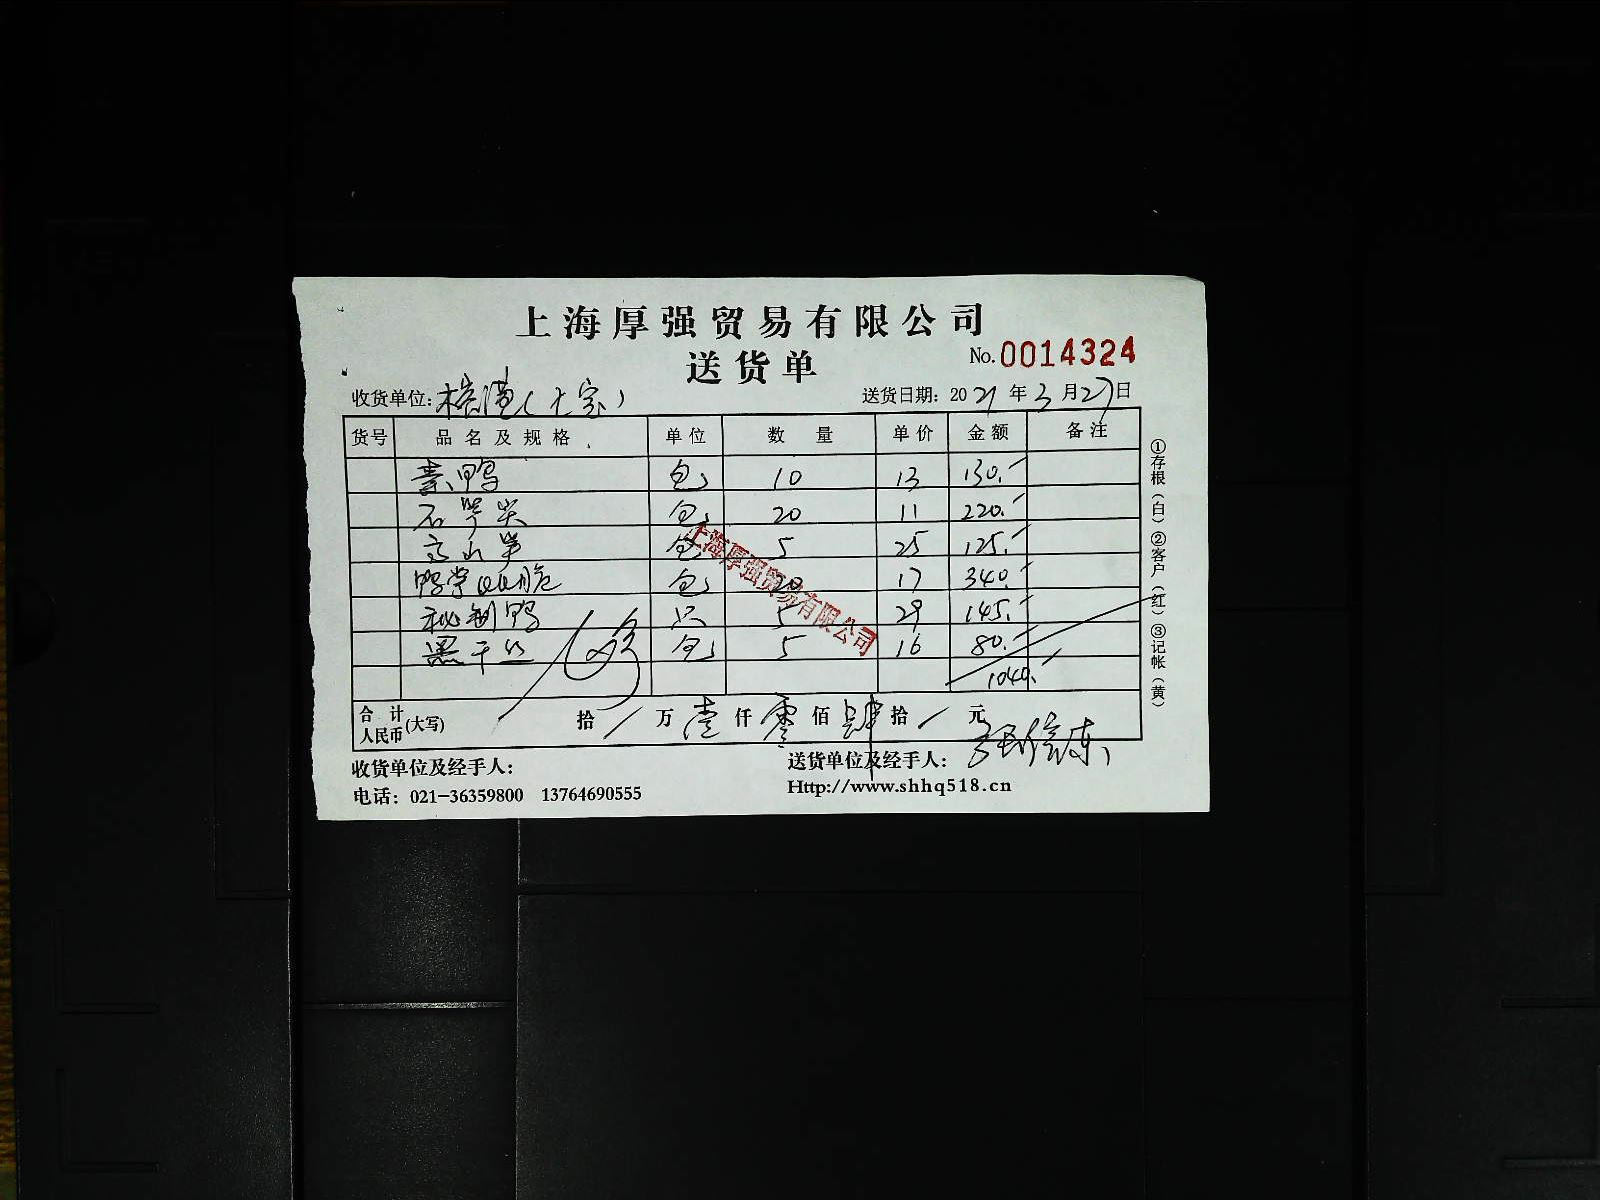 上海厚强贸易有限公司
送货单 No.0014324
收货单位: 送货日期: 2021年3月27日
货号 品名及规格 单位 数量 单价 金额 备注
素鸭 包 10 13 130.
石笋尖 包 20 11 220.
高山笋 包 5 25 125.
鸭掌 脆 包 20 17 340.
秘制鸭 只 5 29 145.
黑干丝 包 5 16 80.
1040.
上海厚强贸易有限公司
合计人民币(大写) 拾 / 万 壹 仟 零 佰 肆 拾 / 元
收货单位及经手人: 送货单位及经手人:
电话: 021-36359800 13764690555 Http://www.shhq518.cn
①存根(白)②客户(红)③记帐(黄)